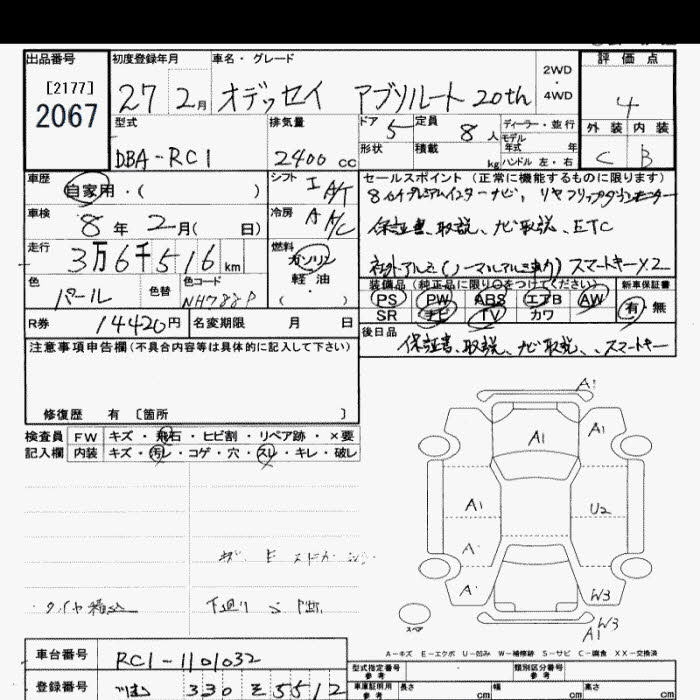 出品番号 初度登録年月 車名・グレード 2WD・4WD 評価点
[2177]
2067 27 2月 オデッセイ アブソルート 20th 4
型式 排気量 ドア 5 定員 8人 ディーラー・並行 外装 内装
モデル年式 年
DBA-RC1 2400cc 形状 積載 kg ハンドル 左・右 C B
車歴 自家用・( ) シフト I A/T セールスポイント (正常に機能するものに限ります)
車検 8年 2月( 日) 冷房 A A/C 保証書、取説、ナビ取説、ETC
走行 3万6千516km 燃料 ガソリン・軽油・ 社外アルミ スマートキーX2
色 パール 色替 色コード NH788P 装備品 (純正品に限り○をつけてください) 新車保証書
PS PW ABS エアB AW 有・無
SR ナビ TV カワ
R券 14420円 名変期限 月 日
後日品 保証書、取説、ナビ取説、、スマートキー
注意事項申告欄(不具合内容等は具体的に記入して下さい)
修復歴 有 〔箇所 〕
検査員記入欄 FW キズ・飛石・ヒビ割・リペア跡・×要
内装 キズ・汚レ・コゲ・穴・スレ・キレ・破レ
A1
A1 A1
A1 U2
A
A W3
W3
A1
スペア
タイヤ積込 下廻り
A-キズ E-エクボ U-凹み W-補修跡 S-サビ C-腐食 XX-交換済
車台番号 RC1-1101032
型式指定番号 参考 類別区分番号 参考
登録番号 330 そ 5512
車庫証明用 参考 長さ cm 幅 cm 高さ cm